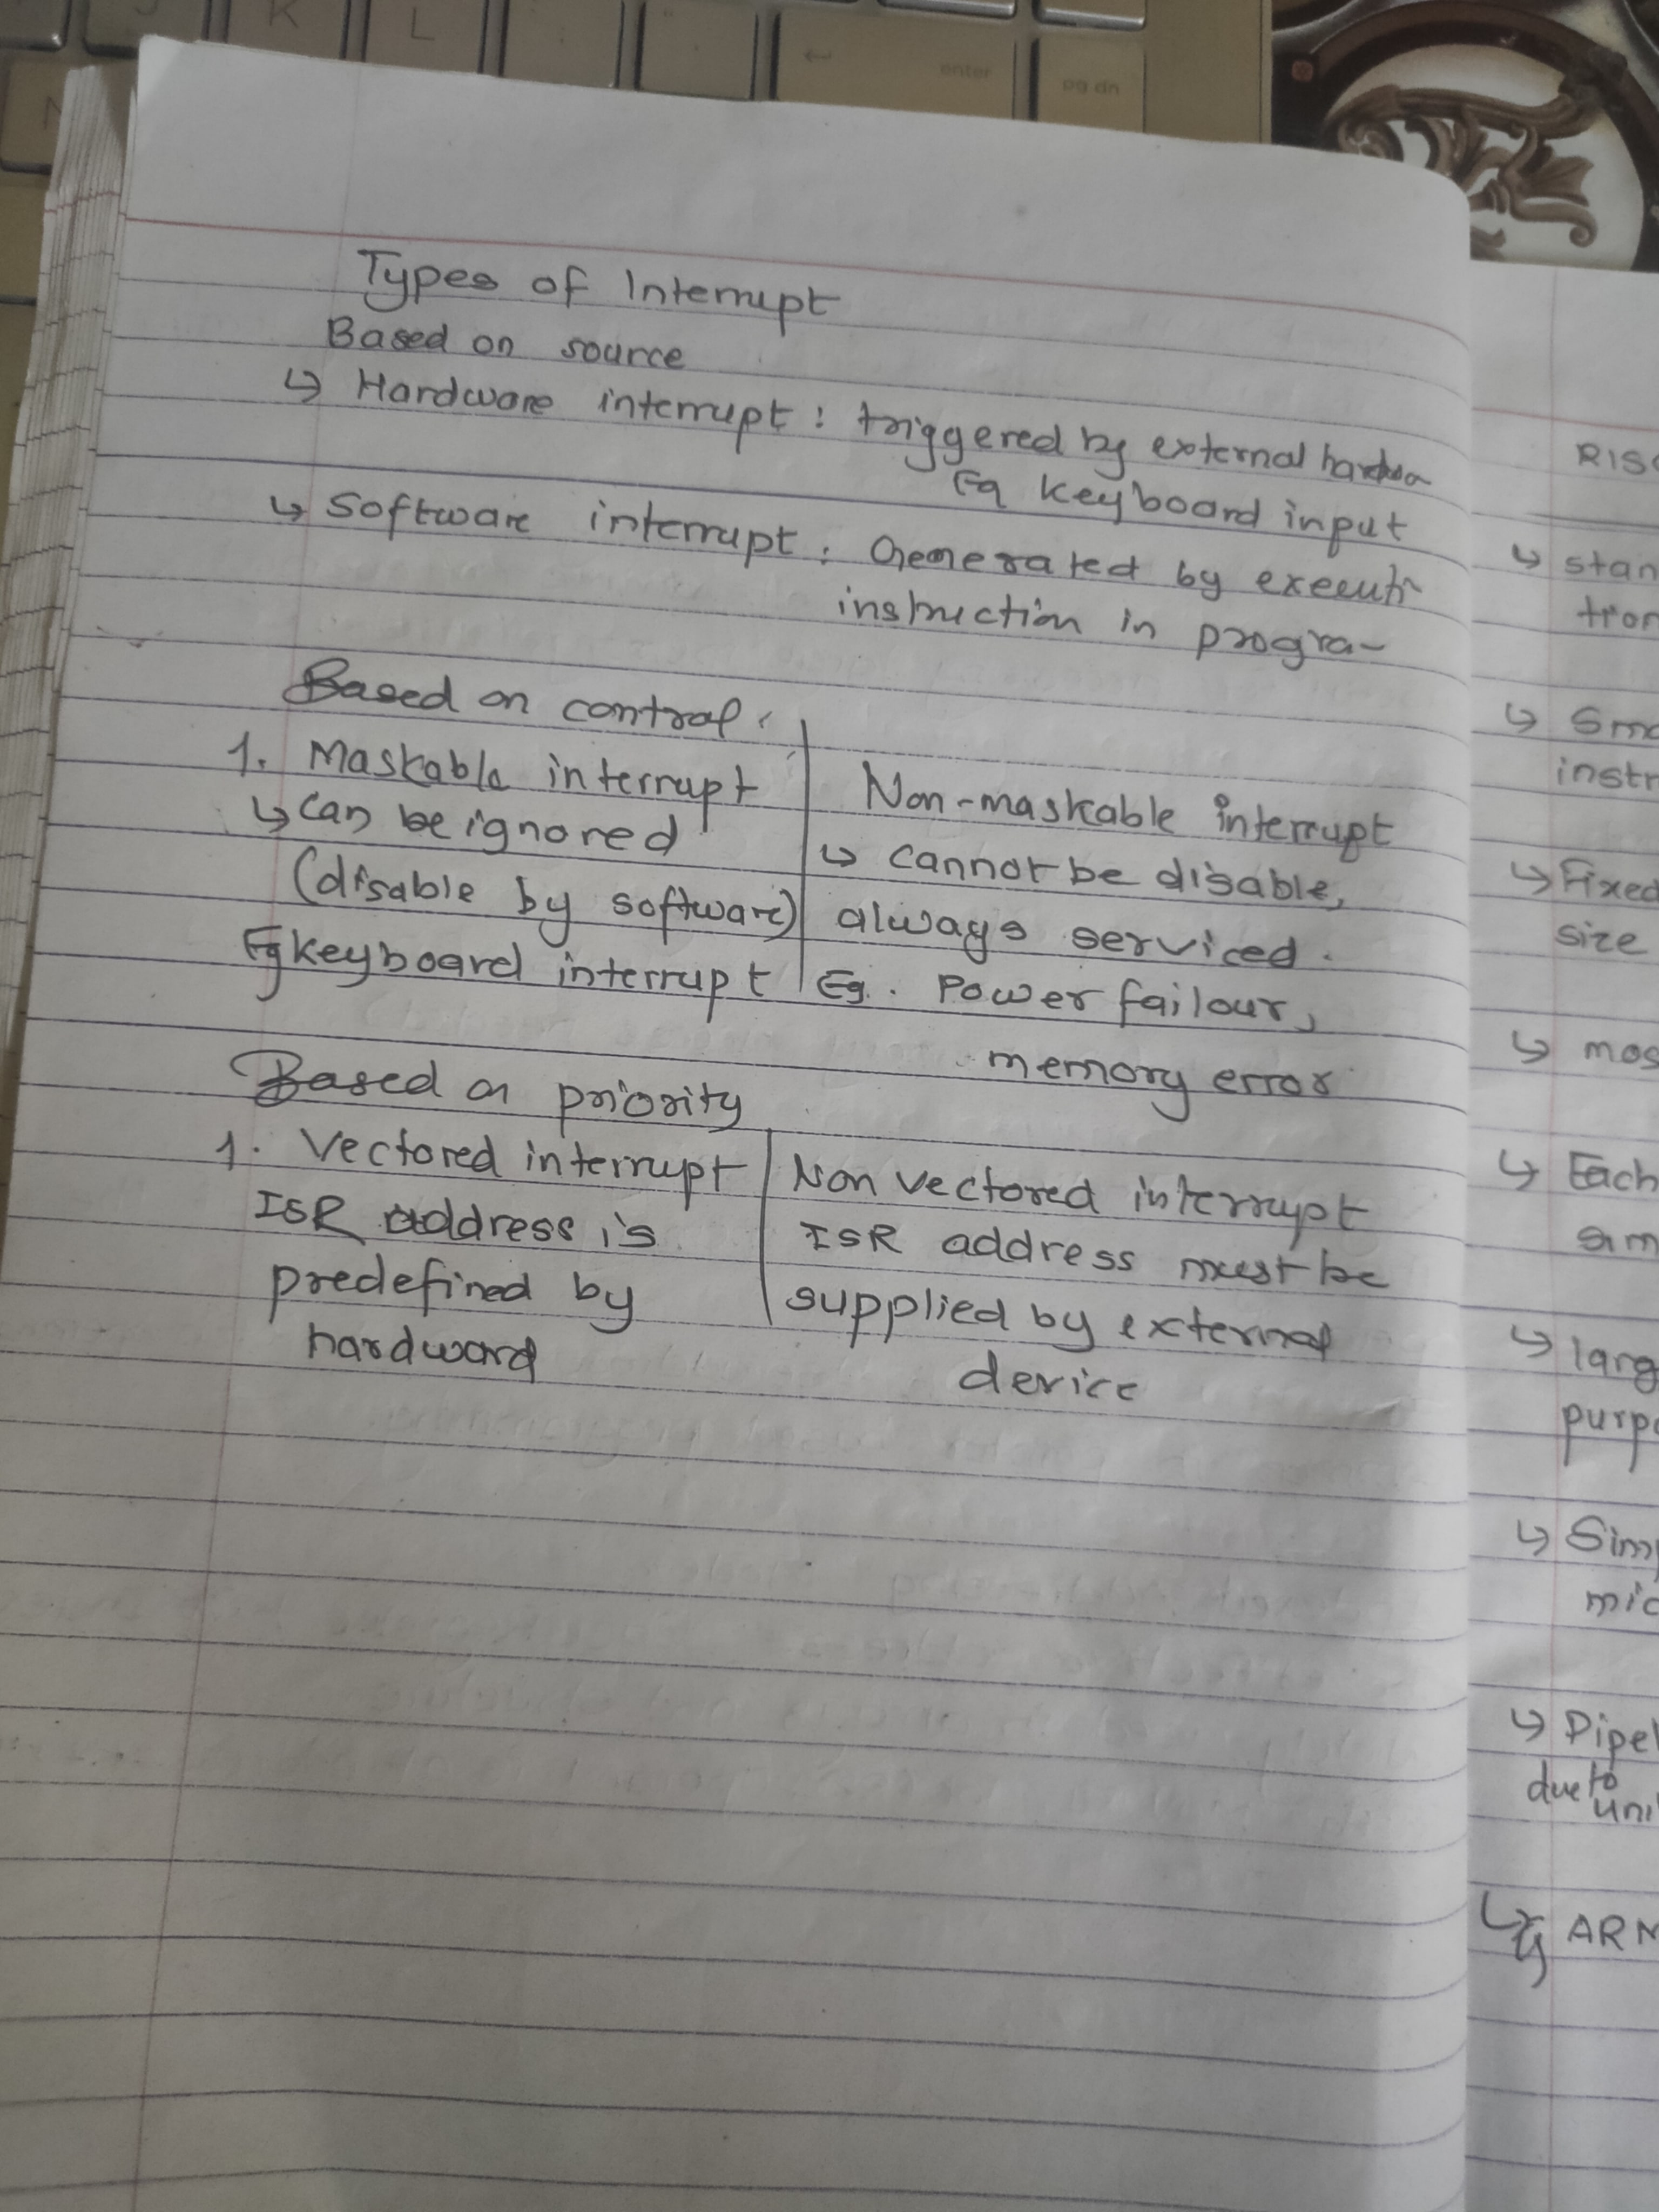 K
L
enter
pg dn
Types of Interrupt
Based on source
↳ Hardware interrupt : triggered by external
Eg keyboard input
↳ Software interrupt : Generated by
instruction in progra~
Based on control :
1. Maskable interrupt
↳ can be ignored
(disable by software)
Eg keyboard interrupt
Non-maskable interrupt
↳ cannot be disable,
always serviced.
Eg. Power failour,
memory error
Based on priority
1. Vectored interrupt
ISR address is
predefined by
hardward
Non vectored interrupt
ISR address must be
supplied by external
device
RISC
↳ stan
tion
↳ Sma
instr
↳ Fixed
size
↳ mos
↳ Each
sim
↳ larg
purpo
↳ Simp
mic
↳ Pipel
due to
uni
↳ Eg ARM